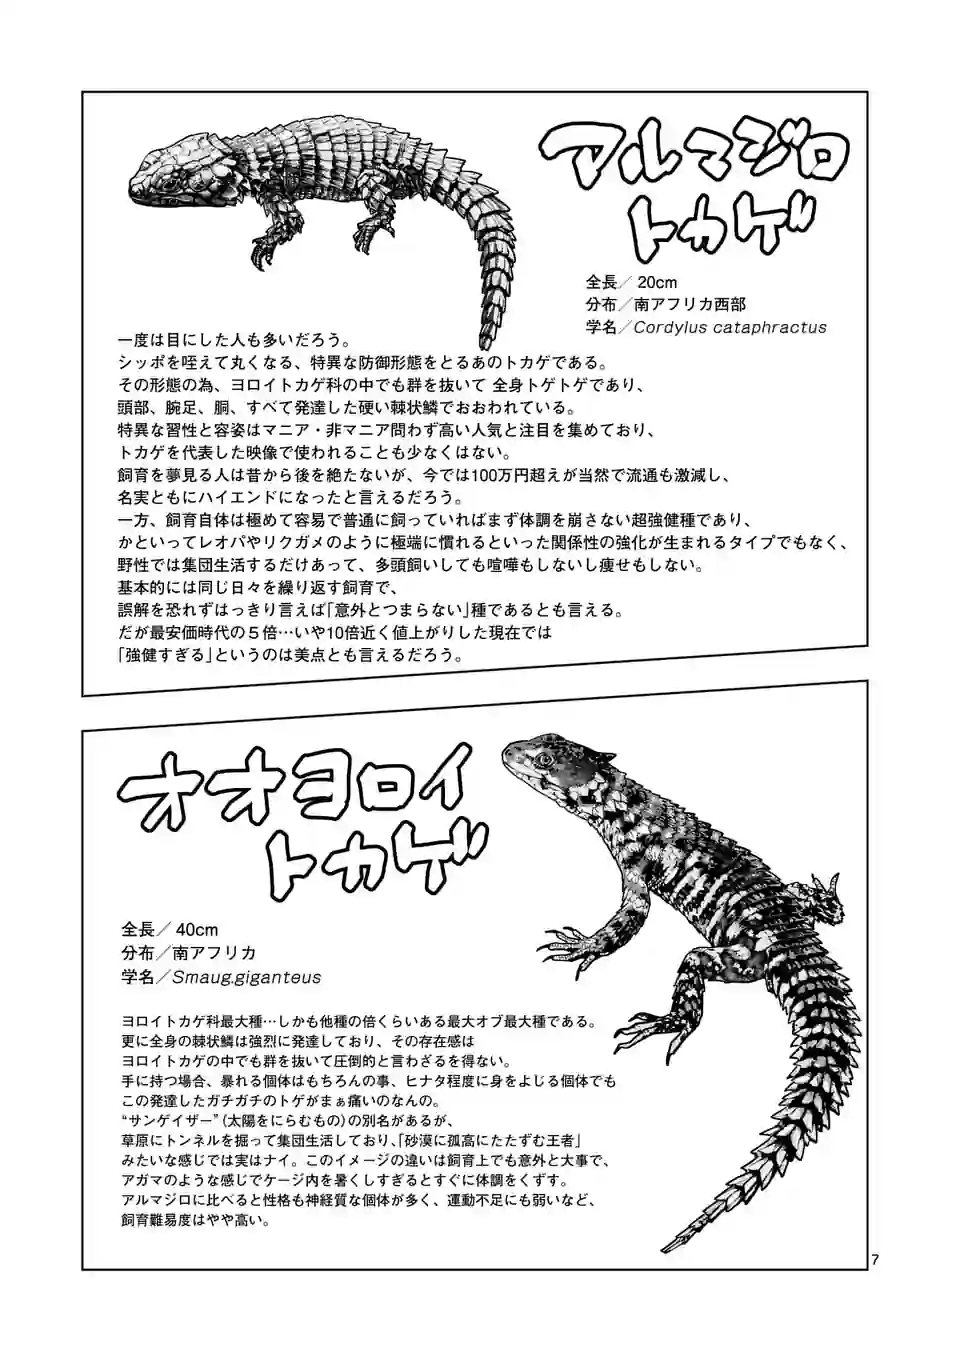 アルマジロ
トカゲ
全長／ 20cm
分布／南アフリカ西部
学名／Cordylus cataphractus
一度は目にした人も多いだろう。
シッポを咥えて丸くなる、特異な防御形態をとるあのトカゲである。
その形態の為、ヨロイトカゲ科の中でも群を抜いて 全身トゲトゲであり、
頭部、腕足、胴、すべて発達した硬い棘状鱗でおおわれている。
特異な習性と容姿はマニア・非マニア問わず高い人気と注目を集めており、
トカゲを代表した映像で使われることも少なくはない。
飼育を夢見る人は昔から後を絶たないが、今では100万円超えが当然で流通も激減し、
名実ともにハイエンドになったと言えるだろう。
一方、飼育自体は極めて容易で普通に飼っていればまず体調を崩さない超強健種であり、
かといってレオパやリクガメのように極端に慣れるといった関係性の強化が生まれるタイプでもなく、
野性では集団生活するだけあって、多頭飼いしても喧嘩もしないし痩せもしない。
基本的には同じ日々を繰り返す飼育で、
誤解を恐れずはっきり言えば「意外とつまらない」種であるとも言える。
だが最安価時代の５倍…いや10倍近く値上がりした現在では
「強健すぎる」というのは美点とも言えるだろう。
オオヨロイ
トカゲ
全長／ 40cm
分布／南アフリカ
学名／Smaug.giganteus
ヨロイトカゲ科最大種…しかも他種の倍くらいある最大オブ最大種である。
更に全身の棘状鱗は強烈に発達しており、その存在感は
ヨロイトカゲの中でも群を抜いて圧倒的と言わざるを得ない。
手に持つ場合、暴れる個体はもちろんの事、ヒナタ程度に身をよじる個体でも
この発達したガチガチのトゲがまぁ痛いのなんの。
“サンゲイザー”（太陽をにらむもの）の別名があるが、
草原にトンネルを掘って集団生活しており、「砂漠に孤高にたたずむ王者」
みたいな感じでは実はナイ。このイメージの違いは飼育上でも意外と大事で、
アガマのような感じでケージ内を暑くしすぎるとすぐに体調をくずす。
アルマジロに比べると性格も神経質な個体が多く、運動不足にも弱いなど、
飼育難易度はやや高い。
7